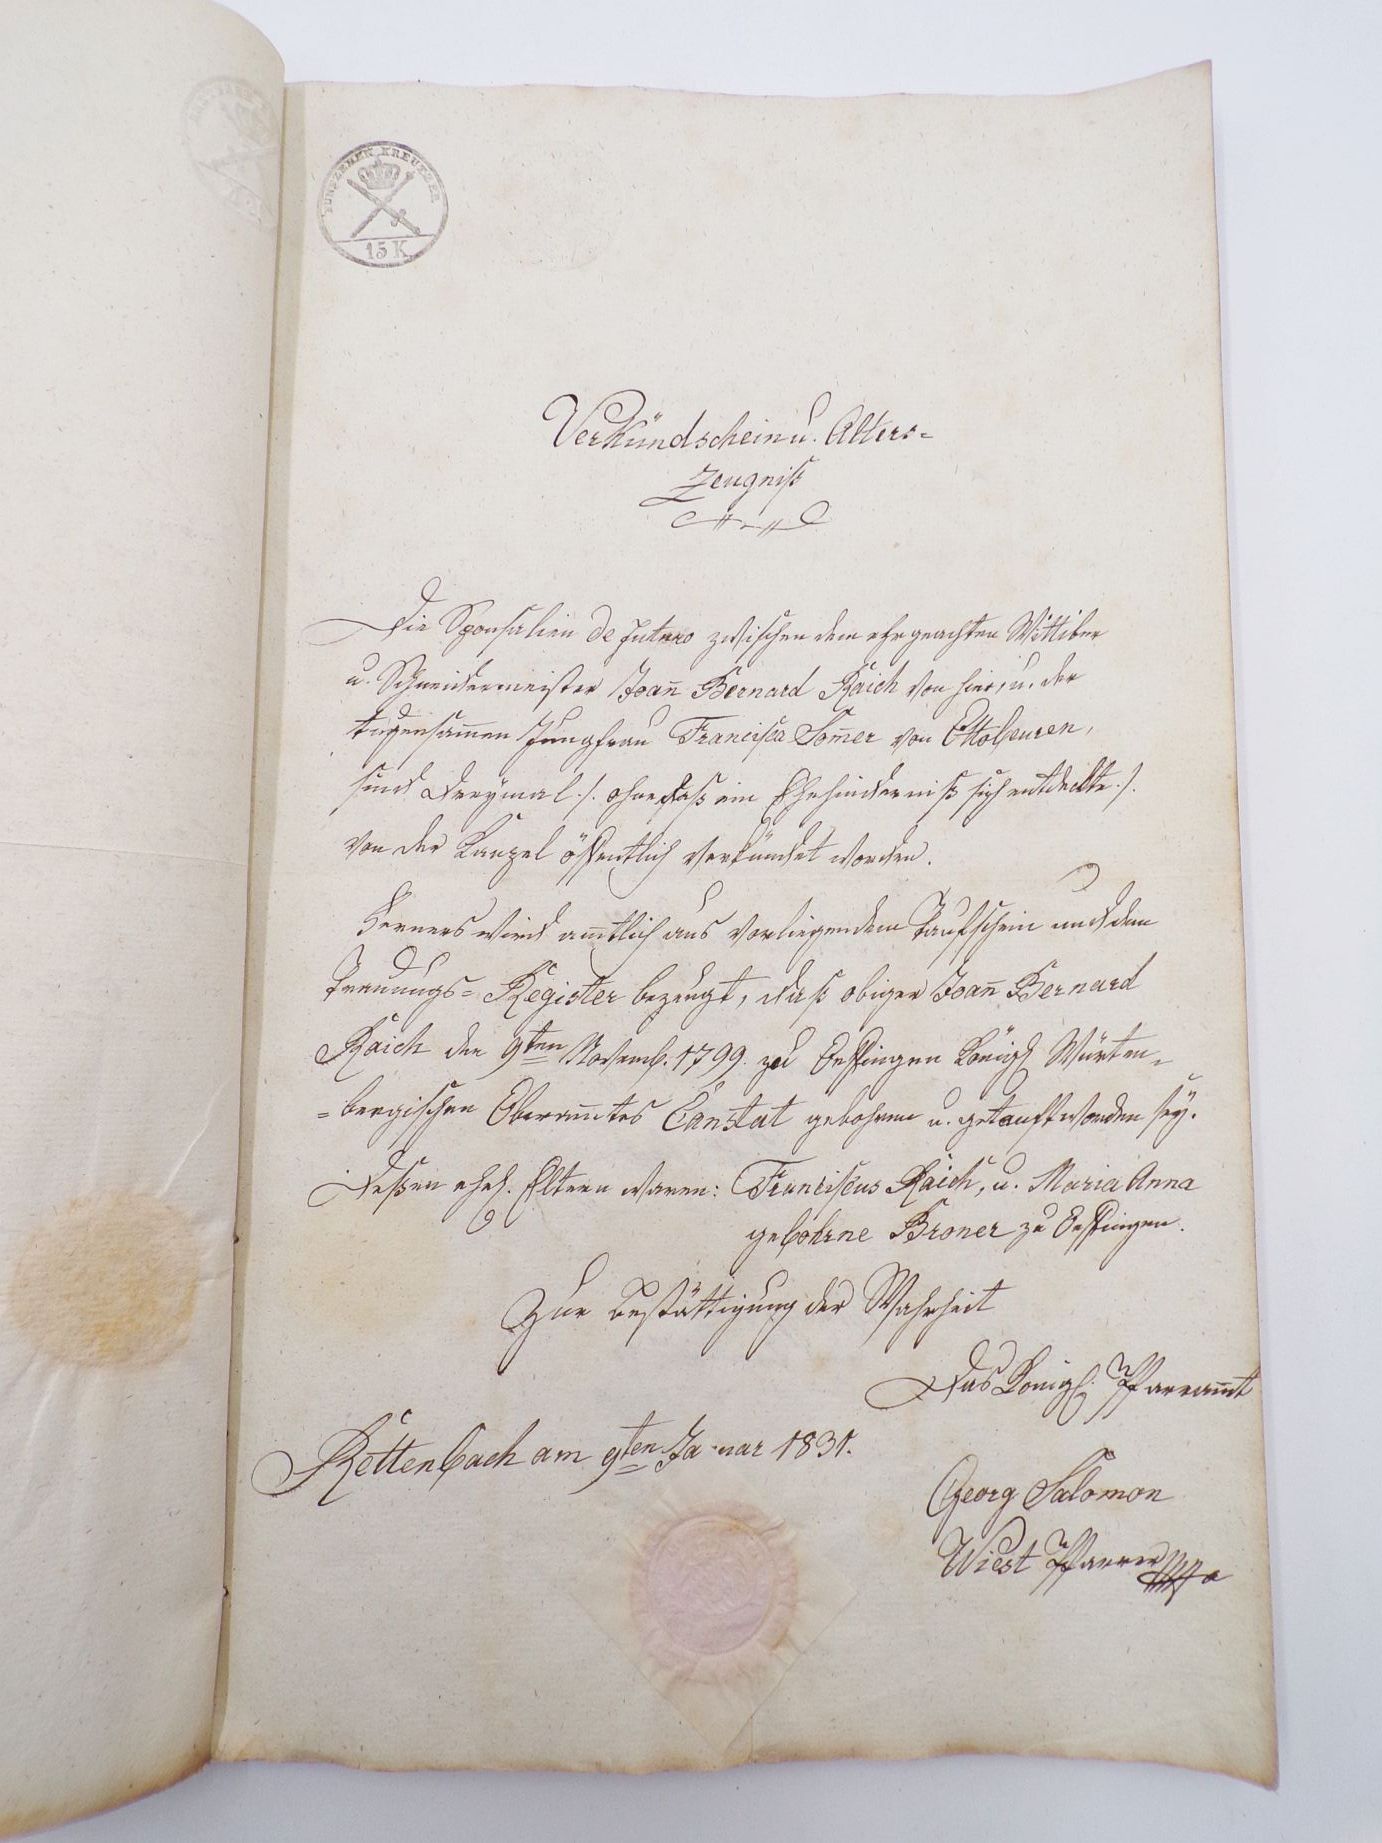 FUNFZEHEN KREUTZER
15 K
Verkündschein u. Alters-
Zeugniß
Die Sponsalien de futuro zwischen dem ehrgeachten Wittiber
u. Schneidermeister Joan̅ Bernard Raich von hier, u. der
tugensam̅en Jungfrau Francisca Som̅er von Ottobeuren,
sind dreymal ./. ohne daß ein Ehehinderniß sich entdeckte ./.
von der Kanzel öffentlich verkündet worden.
Ferners wird am̅tlich aus vorliegendem Taufschein und dem
Trauungs= Register bezeugt, daß obiger Joan̅ Bernard
Raich den 9ten Novemb. 1799. zu Oeffingen Königl. Würten=
=bergischen Oberam̅tes Canstat gebohren u. getauft worden sey.
Dessen ehel. Eltern waren: Franciscus Raich, u. Maria Anna
gebohrne Broner zu Oeffingen.
Zur Bestättigung der Wahrheit
Das Königl. Pfarram̅t
Rettenbach am 9ten Januar 1831.
Georg Salomon
Wiest Pfarrer